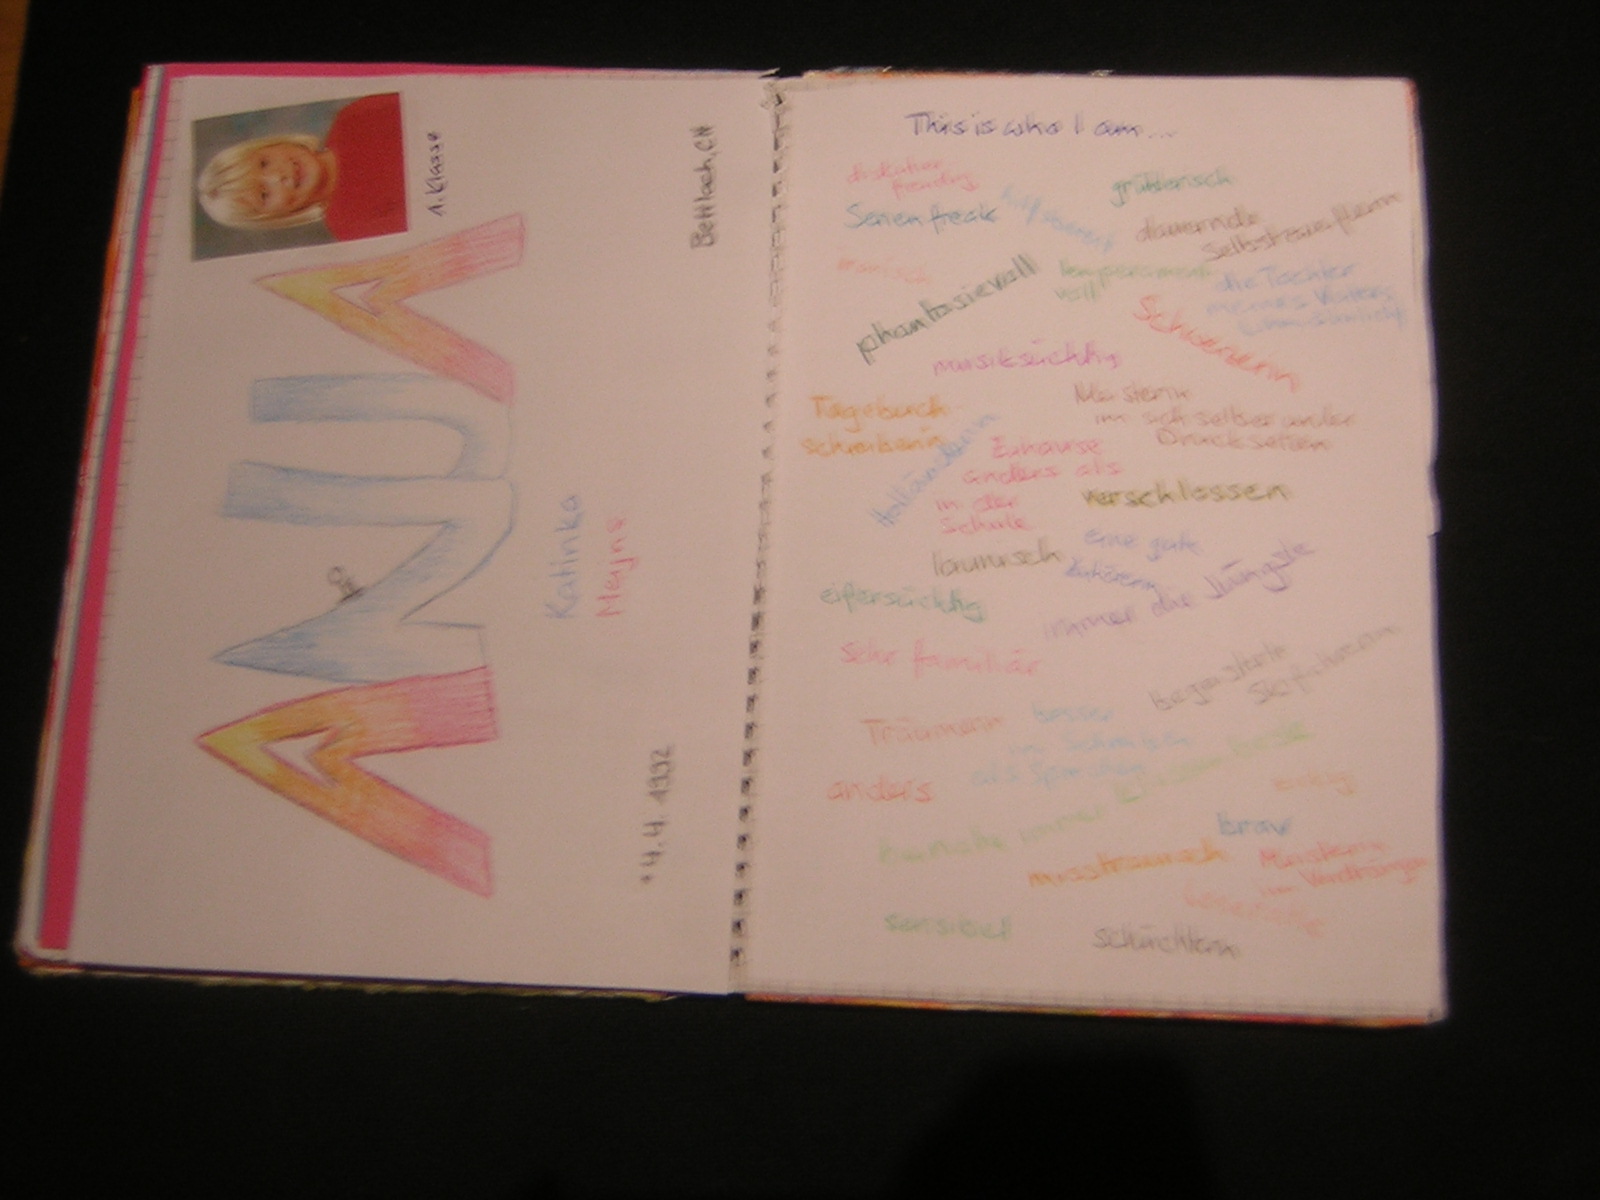 ANJA
1. Klasse
Katinka
Meyns
*4.4.1992
Bettlach, CH
This is who I am...
diskutier
freudig
Serienfreak
hilfsbereit
grüblerisch
dauernde
Selbstzweiflerin
ironisch
phantasievoll
temperament
voll
die Tochter
meines Vaters
Schweizerin
musiksüchtig
Tagebuch
schreiberin
Holländerin
Meisterin
im sich selber unter
Druck setzen
Zuhause
anders als
in der
Schule
verschlossen
launisch
eine gute
Zuhörerin
eifersüchtig
immer die Jüngste
sehr familiär
begeisterte
Skifahrerin
Träumerin
besser
im Schreiben
als Sprechen
anders
immer
brav
misstrauisch
Meisterin
im Verdrängen
sensibel
schüchtern